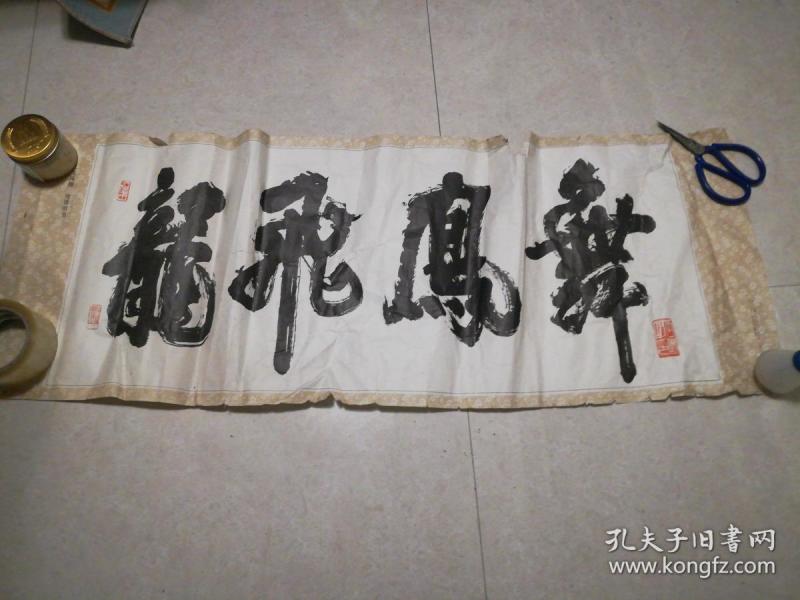 龍飛鳳舞
孔夫子旧書网
www.kongfz.com